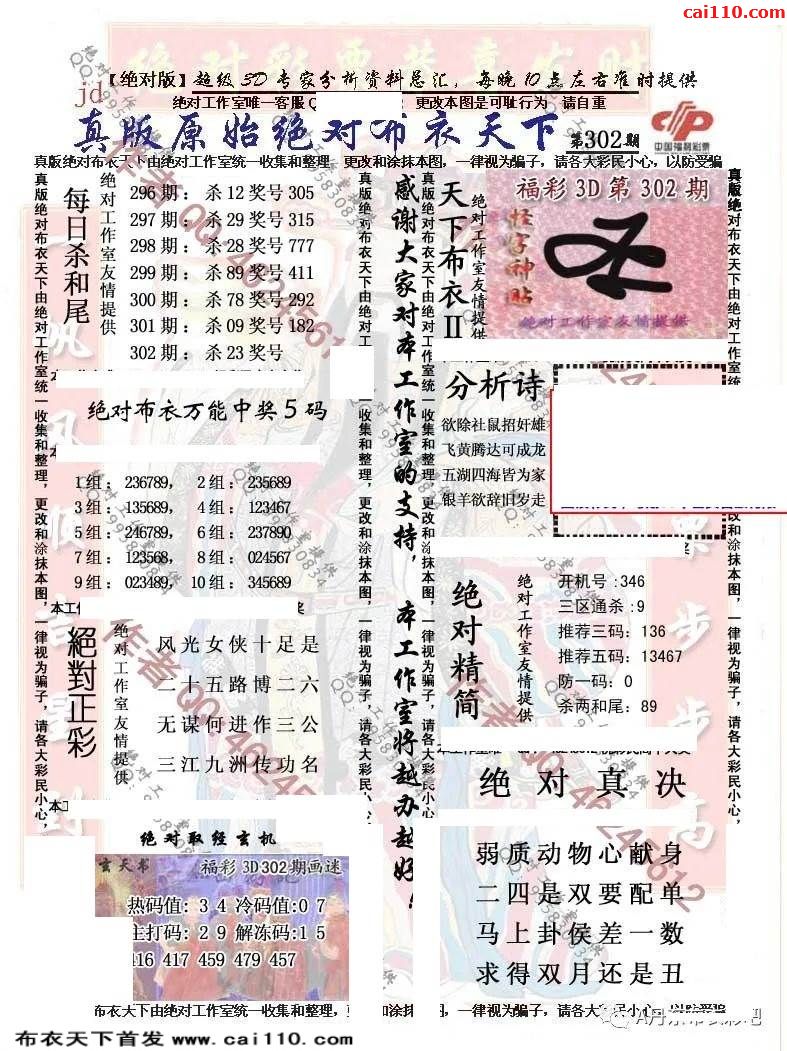 cai110.com
【绝对版】超级3D专家分析资料总汇，每晚10点左右准时提供
jd
绝对工作室唯一客服Q 更改本图是可耻行为 请自重
真版原始绝对布衣天下 第302期
中国福利彩票
真版绝对布衣天下由绝对工作室统一收集和整理，更改和涂抹本图，一律视为骗子，请各大彩民小心，以防受骗
每日杀和尾
绝对工作室友情提供
296期：杀12奖号305
297期：杀29奖号315
298期：杀28奖号777
299期：杀89奖号411
300期：杀78奖号292
301期：杀09奖号182
302期：杀23奖号
绝对布衣万能中奖5码
1组：236789， 2组：235689
3组：135689， 4组：123467
5组：246789， 6组：237890
7组：123568， 8组：024567
9组：023489， 10组：345689
絕對正彩
绝对工作室友情提供
风光女侠十足是
二十五路博二六
无谋何进作三公
三江九洲传功名
绝对取经玄机
玄天书
福彩3D302期画迷
热码值：34冷码值:07
主打码：29解冻码:15
416 417 459 479 457
感谢大家对本工作室的支持，本工作室将越办越好！
天下布衣II
绝对工作室友情提供
福彩3D第302期
怪字神贴
绝对工作室友情提供
分析诗
欲除社鼠招奸雄
飞黄腾达可成龙
五湖四海皆为家
银羊欲辞旧岁走
绝对精简
绝对工作室友情提供
开机号:346
三区通杀:9
推荐三码：136
推荐五码：13467
防一码：0
杀两和尾：89
绝对真决
弱质动物心献身
二四是双要配单
马上卦侯差一数
求得双月还是丑
布衣天下由绝对工作室统一收集和整理，更改和涂抹本图，一律视为骗子，请各大彩民小心，以防受骗
布衣天下首发 www.cai110.com